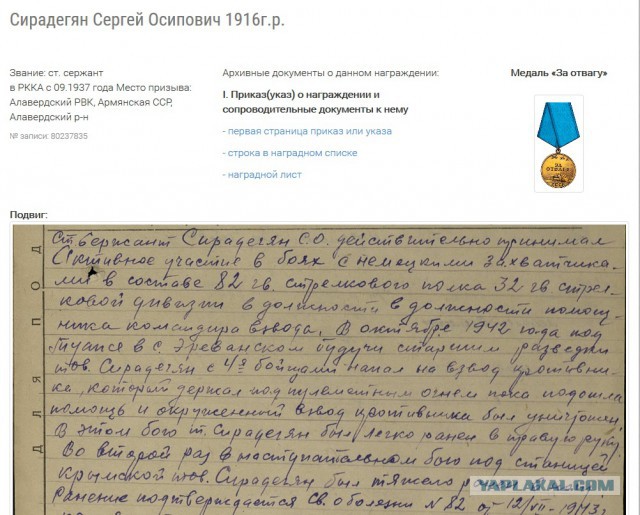 Сирадегян Сергей Осипович 1916г.р.
Звание: ст. сержант
в РККА с 09.1937 года Место призыва:
Алавердский РВК, Армянская ССР,
Алавердский р-н
№ записи: 80237835
Архивные документы о данном награждении:
I. Приказ(указ) о награждении и
сопроводительные документы к нему
- первая страница приказ или указа
- строка в наградном списке
- наградной лист
Медаль «За отвагу»
ЗА
ОТВАГУ
Подвиг:
Ст Сержант Сирадегян С.О. действительно принимал
Активное участие в боях с немецкими захватчика-
ми в составе 82 гв. стрелкового полка 32 гв. стрел-
ковой дивизии в должности в должности помощ-
ника командира взвода. В октябре 1942 года под
Туапсе в с. Эреванском будучи старшим разведки
тов. Сирадегян с 4я бойцами напал на взвод противни-
ка, который держал под пулеметным огнем пока подошла
помощь и окруженный взвод противника был уничтожен
В этом бою т. Сирадегян был легко ранен в правую руку.
Во второй раз в наступательном бою под станицей
Крымской тов. Сирадегян был тяжело
Ранение подтверждается Св. о болезни N 82 от 12/VII-1943г
ДЛЯ ПОД
YAPLAKAL.COM